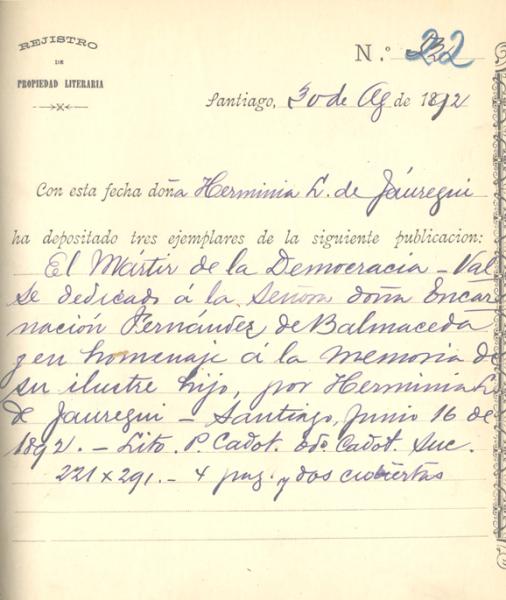 REJISTRO
DE
PROPIEDAD LITERARIA
N.º 22
Santiago, 30 de Ag de 1892
Con esta fecha doña Herminia L. de Jáuregui
ha depositado tres ejemplares de la siguiente publicacion:
El Mártir de la Democracia - Val
se dedicado á la Señora doña Encar
nación Fernández de Balmaceda
en homenaje á la memoria de
su ilustre hijo, por Herminia L.
de Jauregui - Santiago, Junio 16 de
1892. - Lito. P. Cadot. Edo. Cadot. Suc.
221 x 291. - 4 pag. y dos cubiertas